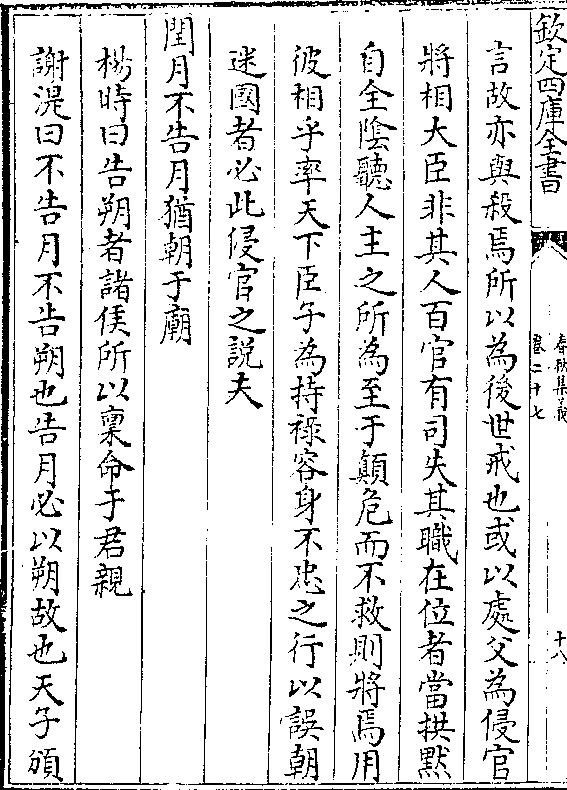 欽定四庫全書
春秋集義
卷二十七
十八
言故亦與殺焉所以為後世戒也或以處父為侵官
將相大臣非其人百官有司失其職在位者當拱默
自全陰聽人主之所為至于顛危而不救則將焉用
彼相乎率天下臣子為持祿容身不忠之行以誤朝
迷國者必此侵官之說夫
閏月不告月猶朝于廟
楊時曰告朔者諸侯所以稟命于君親
謝湜曰不告月不告朔也告月必以朔故也天子頒